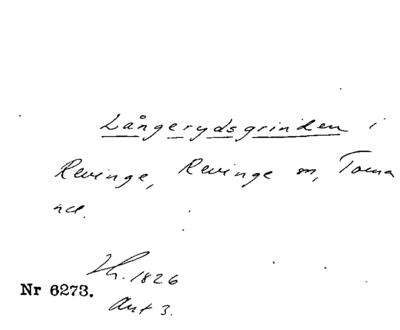 Långerydsgrinden i
Revinge, Revinge sn, Torna
hd.
Th. 1826
Ant 3.
Nr 6273.